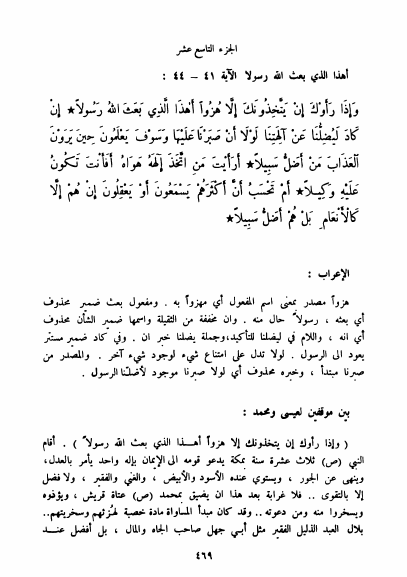 الجزء التاسع عشر
أهذا الذي بعث الله رسولا الآية ٤١ – ٤٤ :
وَإِذَا رَأَوْكَ إِنْ يَتَّخِذُونَكَ إِلَّا هُزُوًا أَهَذَا الَّذِي بَعَثَ اللهُ رَسُولاً★ إِنْ
كَادَ لَيُضِلُّنَا عَنْ آلِهَتِنَا لَوْلَا أَنْ صَبَرْنَا عَلَيْهَا وَسَوْفَ يَعْلَمُونَ حِينَ يَرَوْنَ
الْعَذَابَ مَنْ أَضَلُّ سَبِيلاً★ أَرَأَيْتَ مَنِ اتَّخَذَ إِلَهَهُ هَوَاهُ أَفَأَنْتَ تَكُونُ
عَلَيْهِ وَكِيلاً★ أَمْ تَحْسَبُ أَنَّ أَكْثَرَهُمْ يَسْمَعُونَ أَوْ يَعْقِلُونَ إِنْ هُمْ إِلَّا
كَالْأَنْعَامِ بَلْ هُمْ أَضَلُّ سَبِيلاً★
الإعراب :
هزواً مصدر بمعنى اسم المفعول أي مهزواً به . ومفعول بعث ضمير محذوف
أي بعثه ، رسولاً حال منه . وان مخففة من الثقيلة واسمها ضمير الشأن محذوف
أي انه ، واللام في ليضلنا للتأكيد،وجملة يضلنا خبر ان . وفي كاد ضمير مستتر
يعود الى الرسول . لولا تدل على امتناع شيء لوجود شيء آخر . والمصدر من
صبرنا مبتدأ ، وخبره محذوف أي لولا صبرنا موجود لأضلنا الرسول .
بين موقفين لعيسى ومحمد :
( وإذا رأوك إن يتخذونك إلا هزواً أهـذا الذي بعث الله رسولاً ) . أقام
النبي (ص) ثلاث عشرة سنة بمكة يدعو قومه الى الإيمان بإله واحد يأمر بالعدل،
وينهى عن الجور ، ويستوي عنده الأسود والأبيض ، والغني والفقير ، ولا فضل
إلا بالتقوى .. فلا غرابة بعد هذا ان يضيق بمحمد (ص) عتاة قريش ، ويؤذوه
ويسخروا منه ومن دعوته .. وقد كان مبدأ المساواة مادة خصبة لهزئهم وسخريتهم..
بلال العبد الذليل الفقير مثل أبي جهل صاحب الجاه والمال ، بل أفضل عنـد
٤٦٩